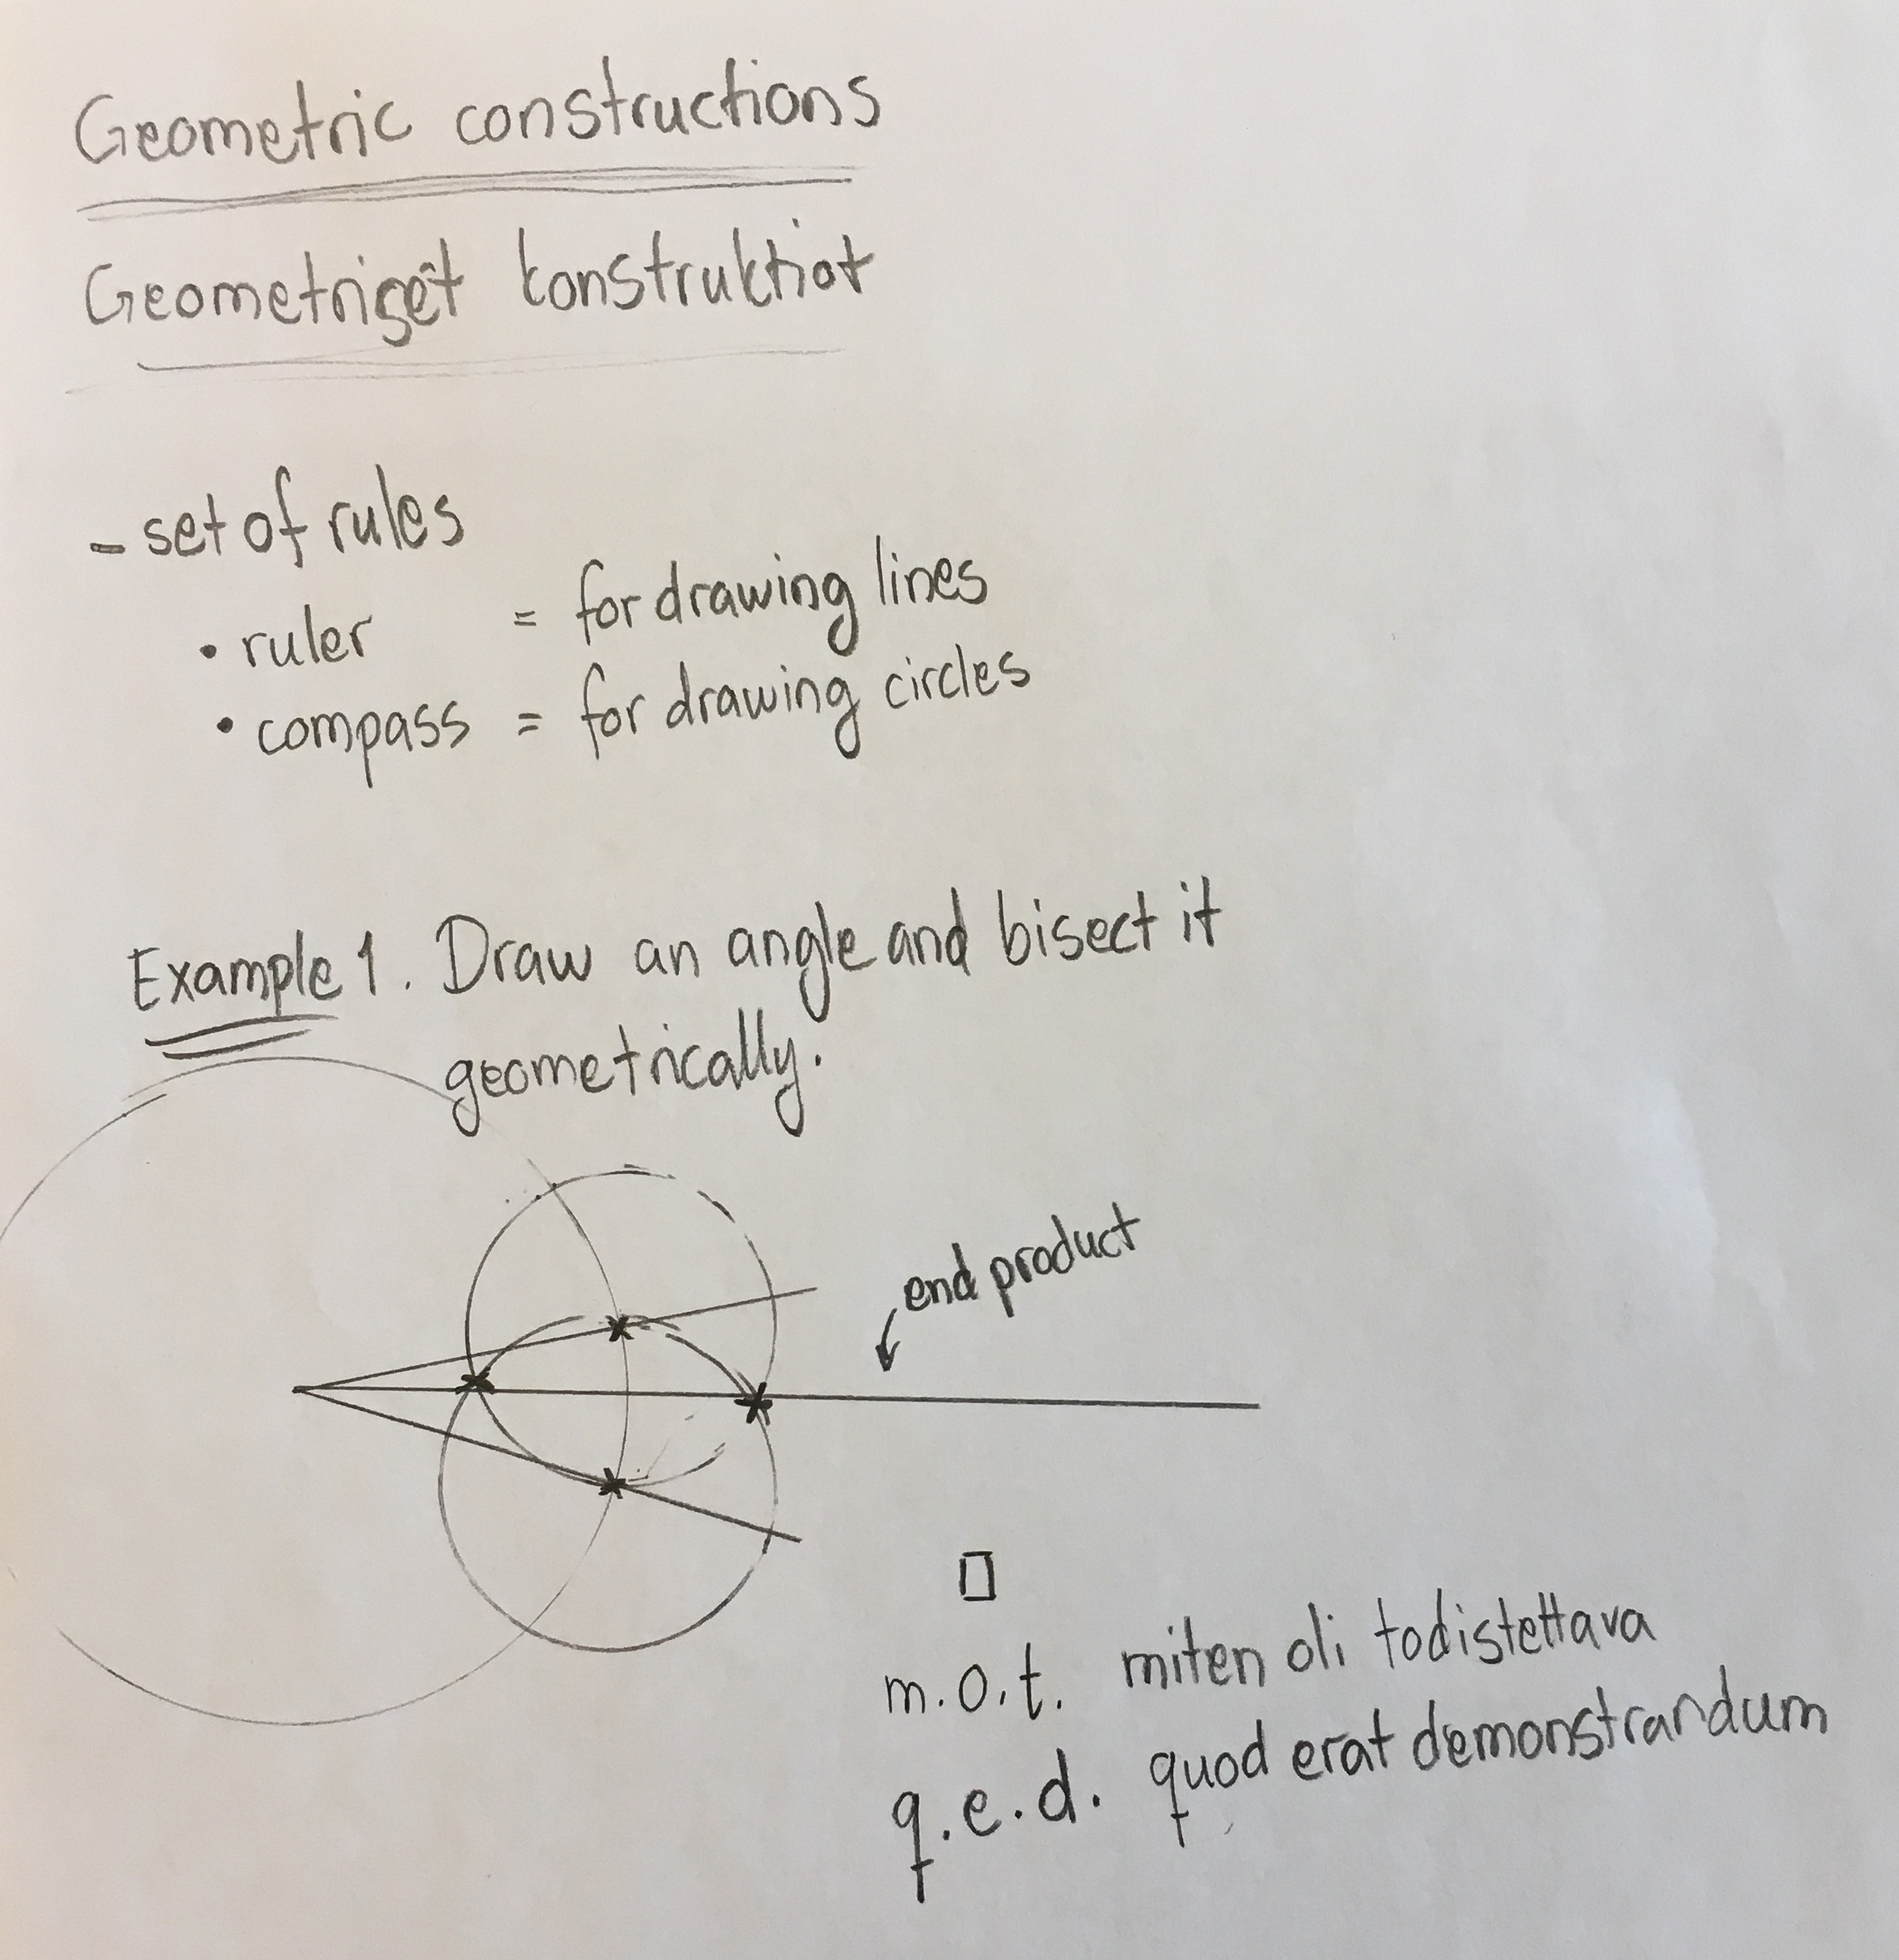 Geometric constructions
Geometriset konstruktiot
- set of rules
• ruler = for drawing lines
• compass = for drawing circles
Example 1. Draw an angle and bisect it
geometrically.
end product
m.o.t. miten oli todistettava
q.e.d. quod erat demonstrandum